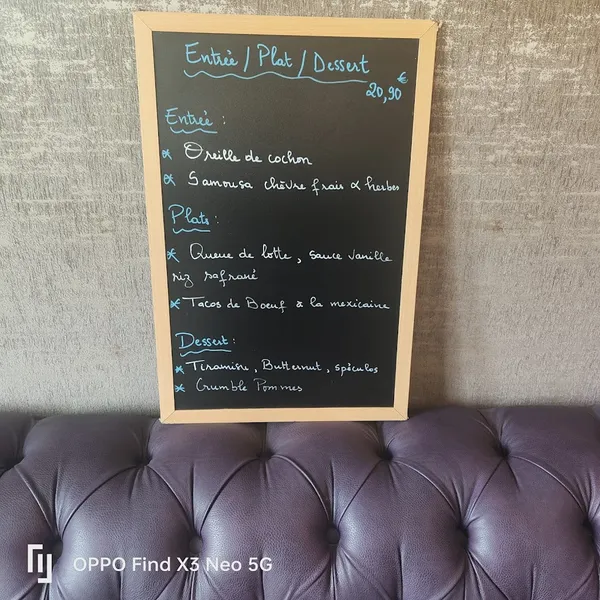 Entrée / Plat / Dessert
20,90 €
Entrée :
* Oreille de cochon
* Samousa chèvre frais & herbes
Plats :
* Queue de lotte, sauce vanille
riz safrané
* Tacos de Boeuf à la mexicaine
Dessert :
* Tiramisu, Butternut, spéculos
* Crumble Pommes
OPPO Find X3 Neo 5G